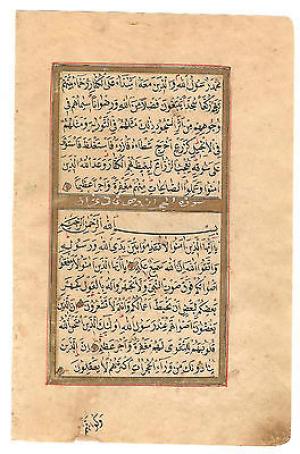 محمد رسول الله والذين معه اشداء على الكفار رحماء بينهم
تريهم ركعا سجدا يبتغون فضلا من الله ورضوانا سيماهم في
وجوههم من اثر السجود ذلك مثلهم في التورية ومثلهم
في الانجيل كزرع اخرج شطأه فآزره فاستغلظ فاستوى
على سوقه يعجب الزراع ليغيظ بهم الكفار وعد الله الذين
آمنوا وعملوا الصالحات منهم مغفرة واجرا عظيما
سورة الحجرات
بسم الله الرحمن الرحيم
يا ايها الذين آمنوا لا تقدموا بين يدي الله ورسوله
واتقوا الله ان الله سميع عليم يا ايها الذين آمنوا لا ترفعوا
اصواتكم فوق صوت النبي ولا تجهروا له بالقول كجهر
بعضكم لبعض ان تحبط اعمالكم وانتم لا تشعرون ان الذين
يغضون اصواتهم عند رسول الله اولئك الذين امتحن الله
قلوبهم للتقوى لهم مغفرة واجر عظيم ان الذين
ينادونك من وراء الحجرات اكثرهم لا يعقلون
ولو انهم